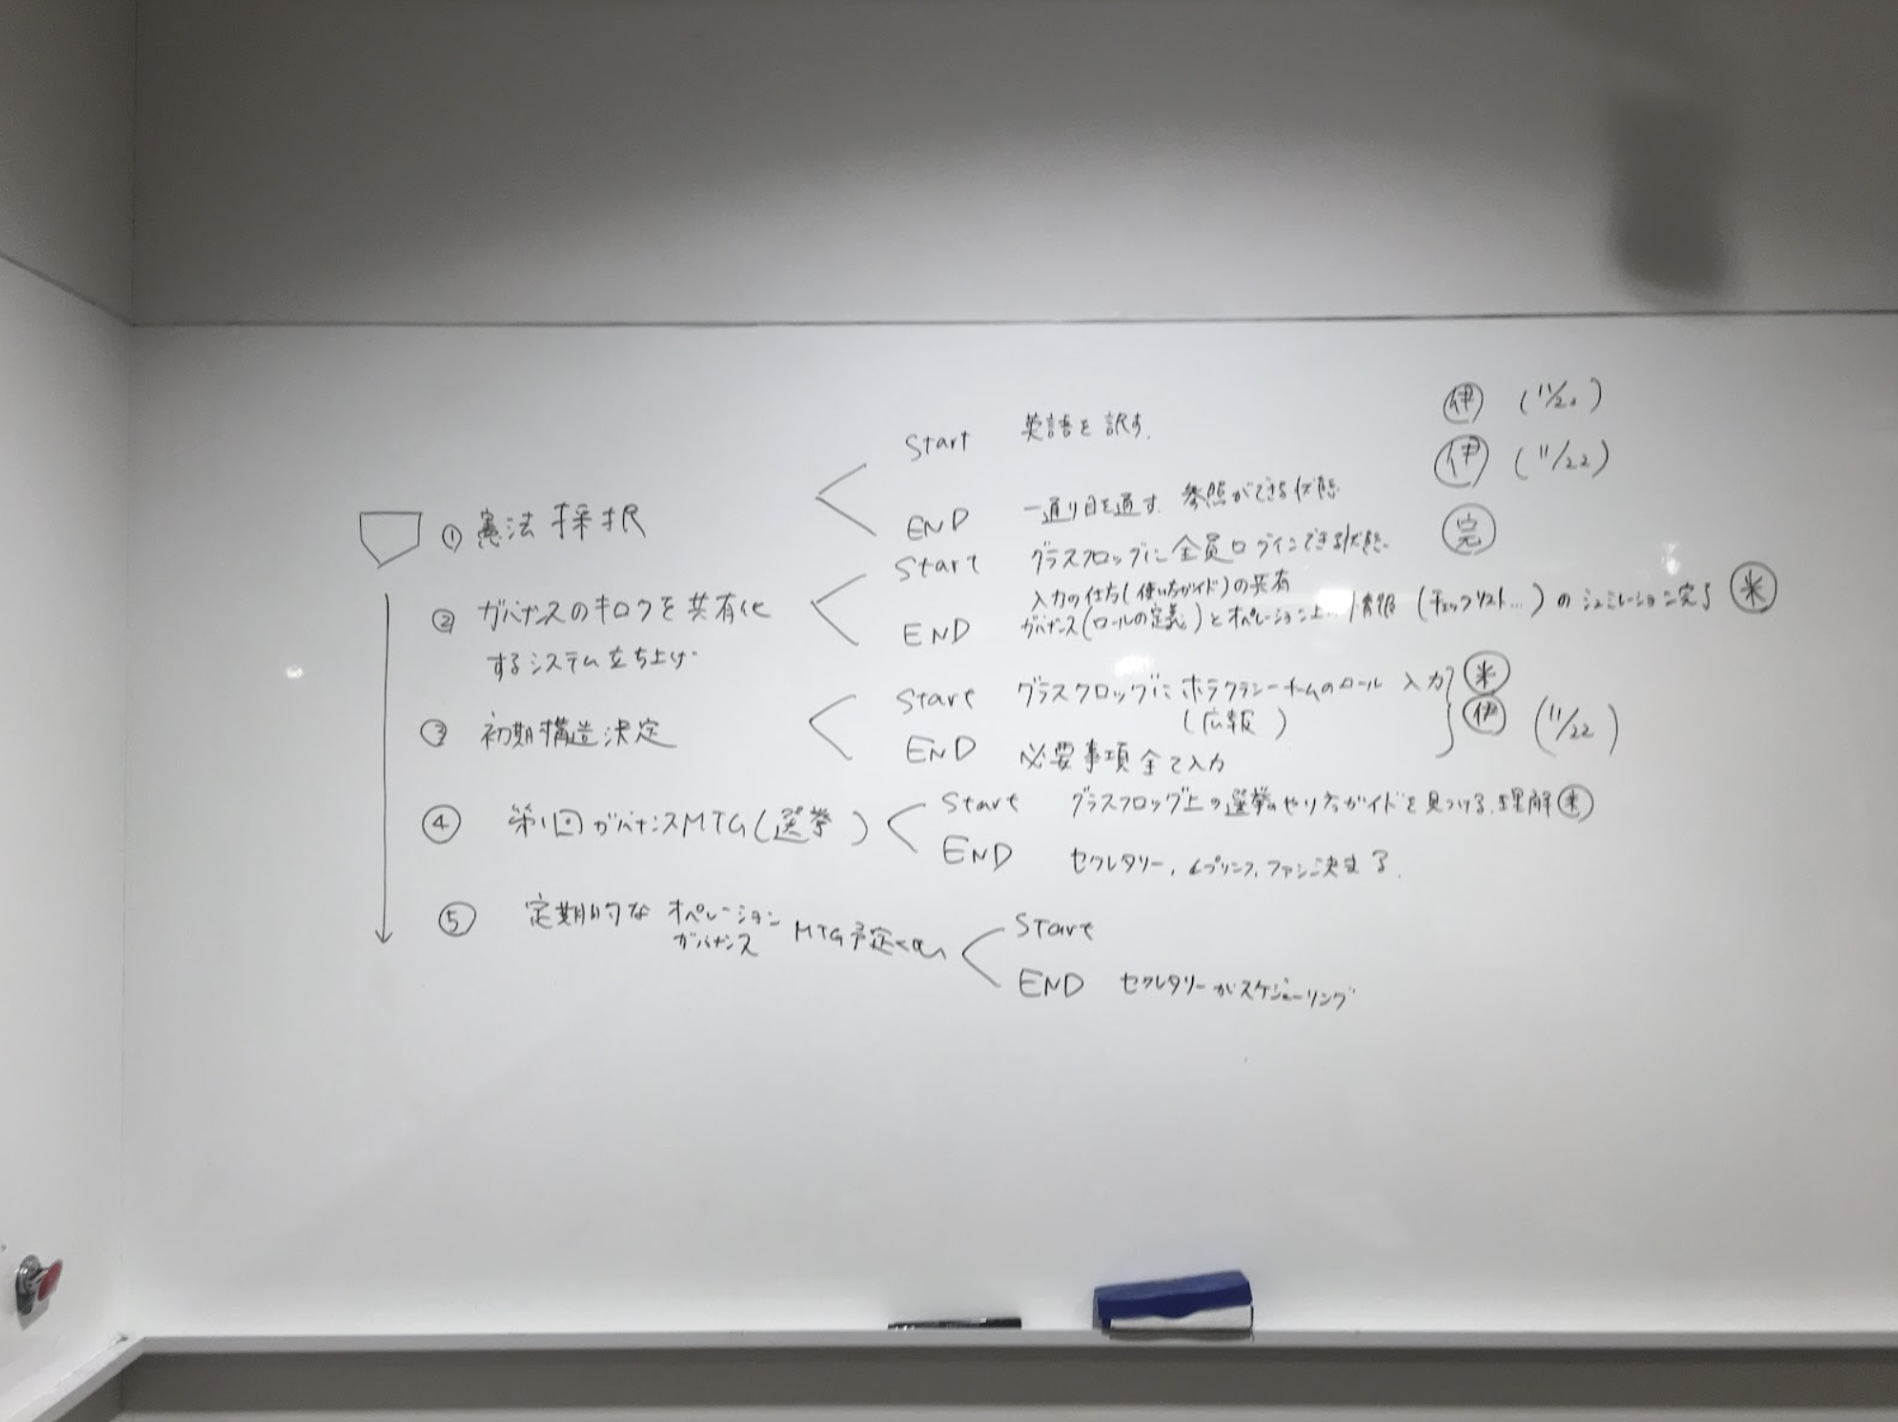 Start 英語を訳す. 伊 (11/2)
伊 (11/22)
① 憲法採択
END 一通り目を通す. 参照ができる状態.
完
Start グラスフロッグに全員ログインできる状態.
② ガバナンスのキロクを共有化
するシステム立ち上げ.
入力の仕方(使い方ガイド)の共有
END ガバナンス(ロールの定義)とオペレーション上の情報 (チェックリスト...) のシュミレーション完了 米
③ 初期構造決定
Start グラスフロッグにホラクラシーチームのロール 入力 米
(広報)
伊 (11/22)
END 必要事項全て入力
④ 第1回ガバナンスMTG(選挙)
Start グラスフロッグ上の選挙のやり方ガイドを見つける. 理解 米
END セクレタリー, レプリンク, ファシ決まる.
⑤ 定期的な オペレーション
ガバナンス MTG予定
Start
END セクレタリーがスケジューリング